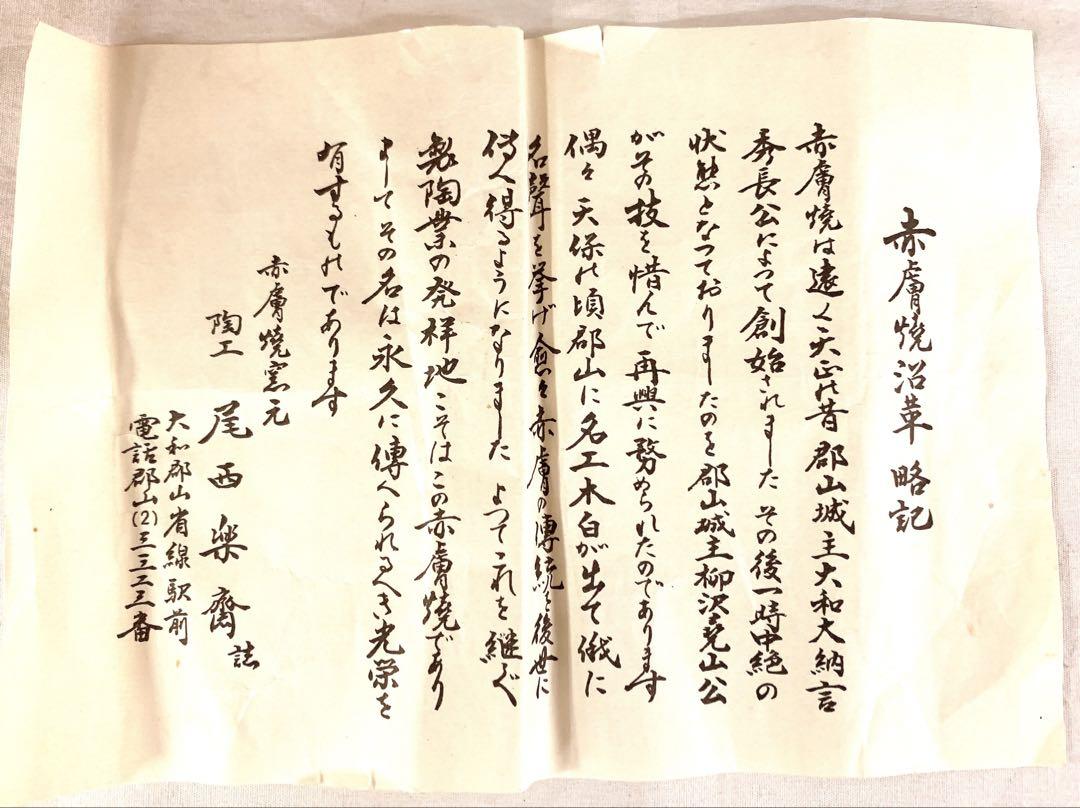 赤膚焼沿革略記
赤膚燒は遠く天正の昔郡山城主大和大納言
秀長公によつて創始されました その後一時中絶の
状態となつておりましたのを郡山城主柳沢堯山公
がその技を惜んで再興に務められたのであります
偶々天保の頃郡山に名工木白が出て俄に
名聲を挙げ愈々赤膚の傳統を後世に
傳へ得るようになりました よつてこれを継ぐ
製陶業の発祥地こそはこの赤膚燒であり
ましてその名は永久に傳へられるべき光栄を
有するものであります
赤膚燒窯元
陶工 尾西楽齋 誌
大和郡山省線駅前
電話郡山(2)三三二三番